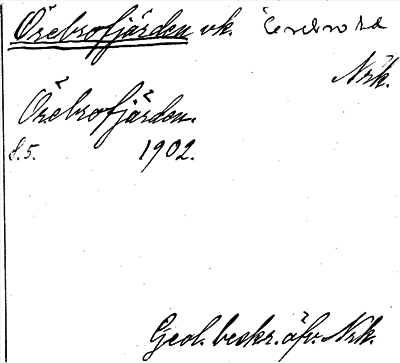 Örebrofjärden vk.
Nrk.
Örebrofjärden.
s. 5. 1902.
Geol. beskr. öfv. Nrk.